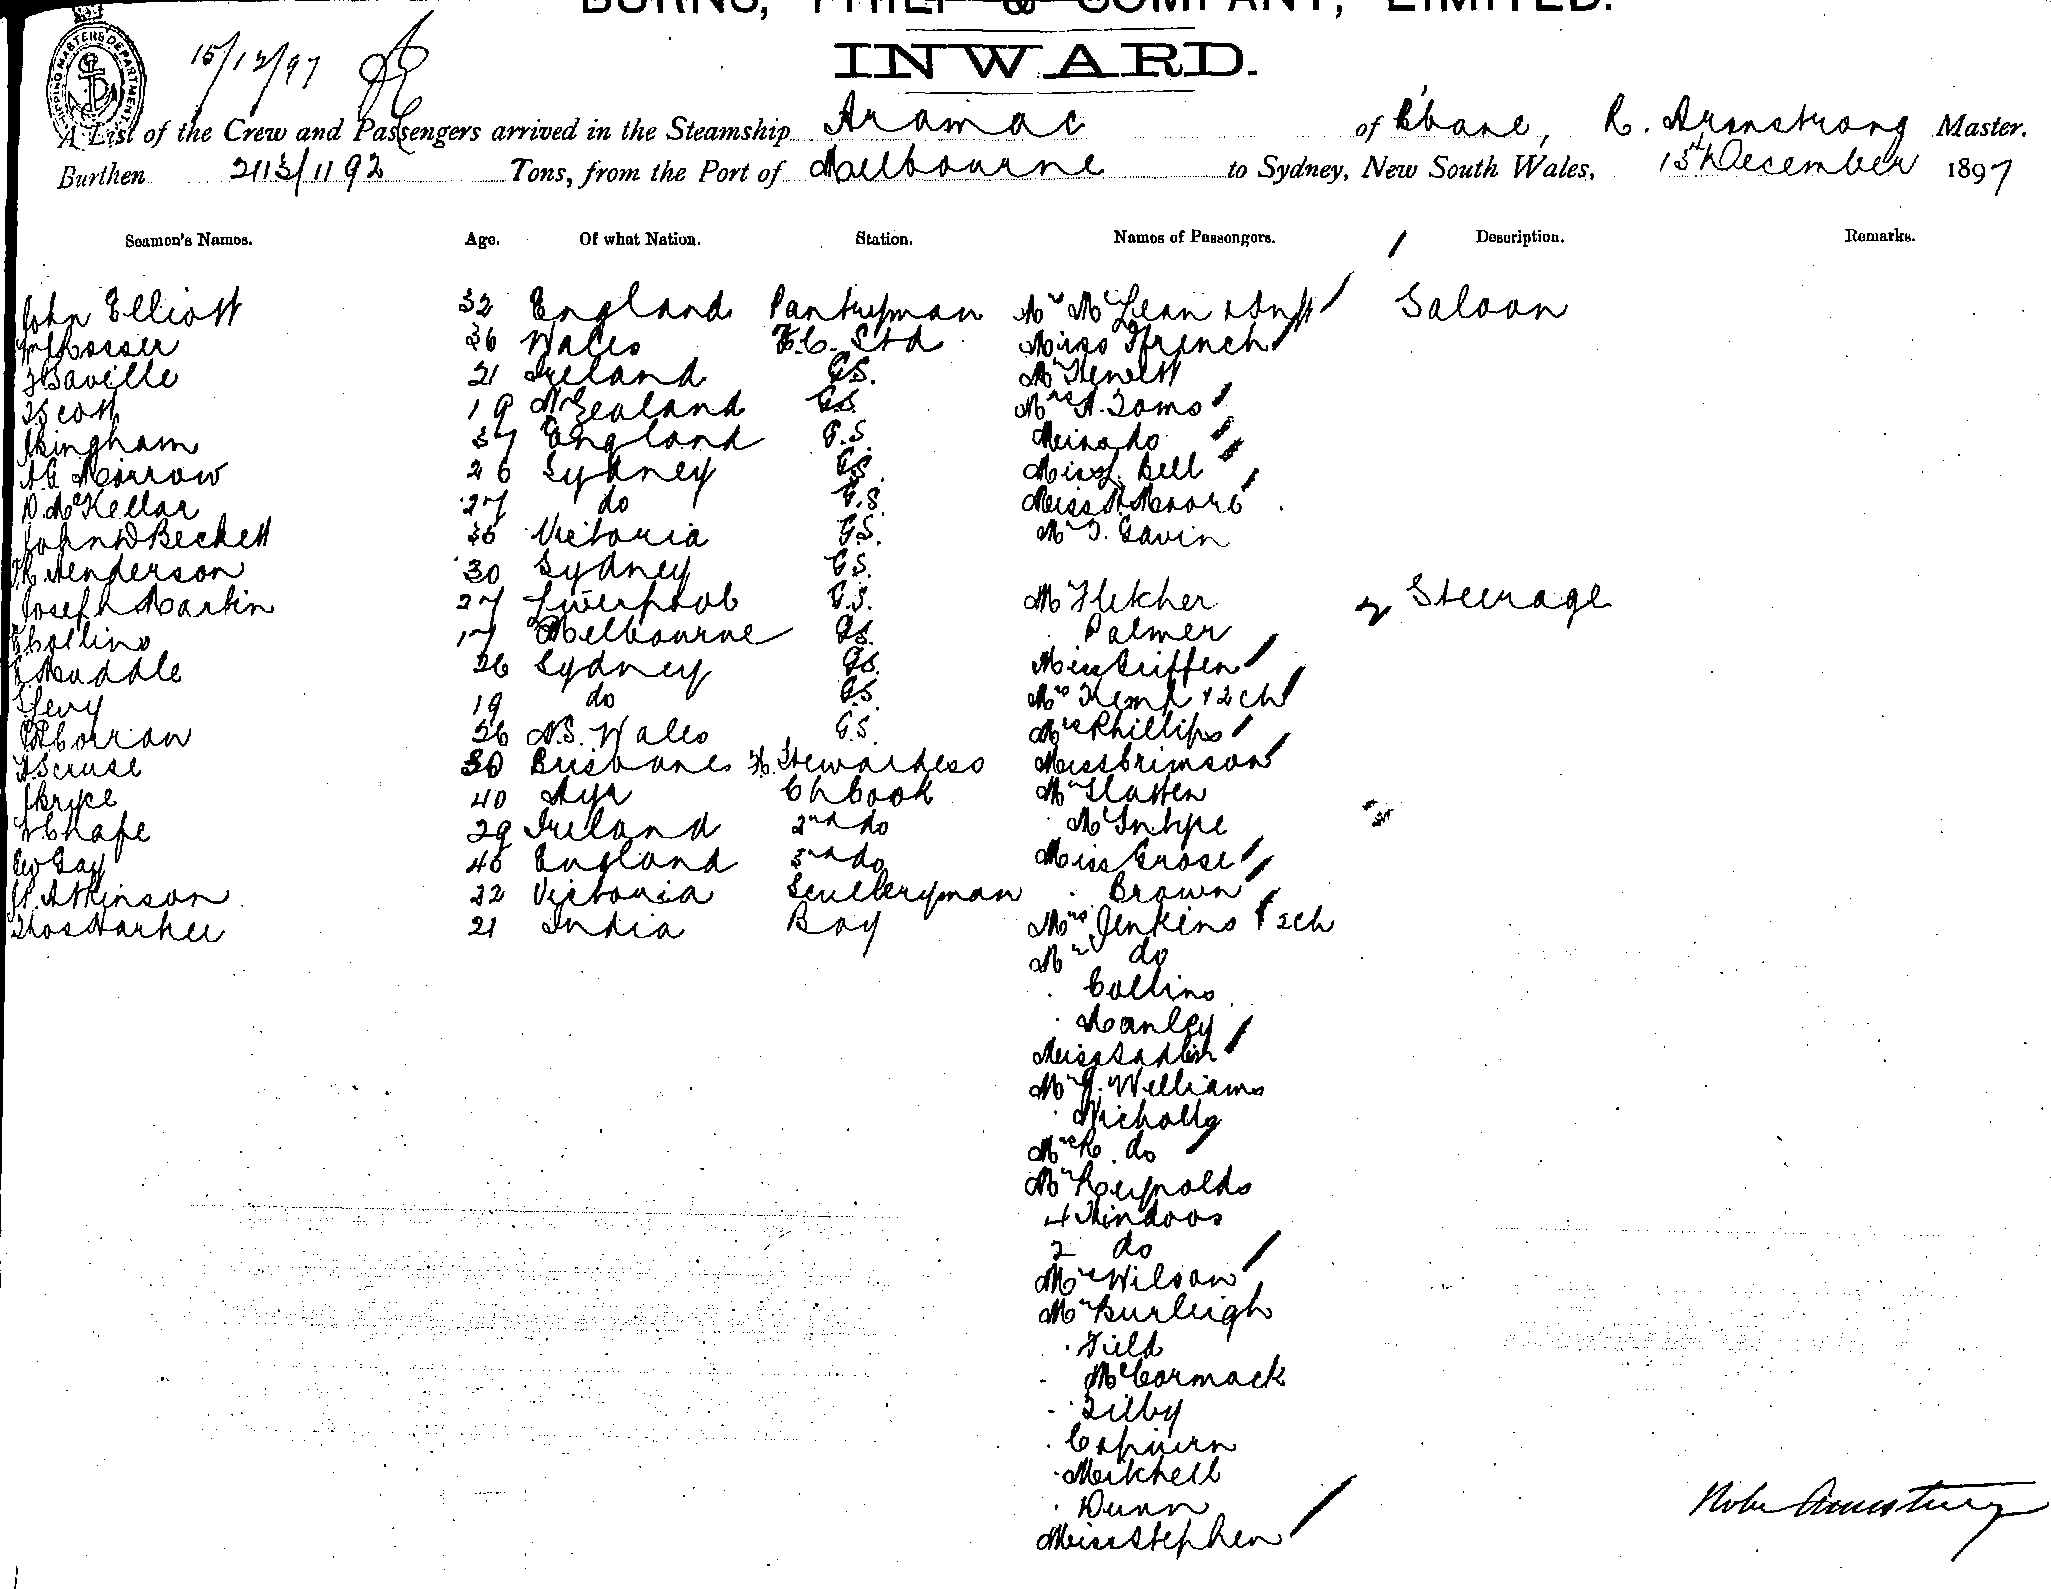 BURNS, PHILP & COMPANY, LIMITED.
INWARD.
15/12/97
SHIPPING MASTERS DEPARTMENT
A List of the Crew and Passengers arrived in the Steamship Aramac of B'bane, R. Armstrong Master.
Burthen 2113/1192 Tons, from the Port of Melbourne to Sydney, New South Wales, 15th December 1897
Seamen's Names. Age. Of what Nation. Station. Names of Passengers. Description. Remarks.
John Elliott 32 England Pantryman Mr McLean Saloon
Prosser 36 Wales F.C. Std Miss Ffrench
Saville 21 Ireland G.S. Mr Hewett
Scott 19 N Zealand G.S. Mrs A. Toms
Bingham 37 England G.S. Miss do
Morrow 26 Sydney G.S. Miss L. Bell
D McKellar 27 do G.S. Miss Moore
John D Beckett 35 Victoria G.S. Mr T. Gavin
Henderson 30 Sydney G.S.
Joseph Martin 27 Liverpool G.S. Mr Fletcher Steerage
Collins 17 Melbourne G.S. Palmer
Maddle 26 Sydney G.S. Miss Griffen
Levy 19 do G.S. Mrs Kemp & 2 ch
Corran 26 N.S. Wales G.S. Mrs Phillips
Scruse 30 Brisbane F. Stewardess Miss Crimson
Bryce 40 Ayr Ch Cook Mr Slatten
Chape 29 Ireland 2nd do McIntyre
Geo Gay 45 England 3rd do Miss Grose
Atkinson 22 Victoria Sculleryman Brown
Thos Harker 21 India Boy Mrs Jenkins & 2 ch
Mr do
Collins
Manley
Miss Sadlier
Mr J. Williams
Nicholls
Mrs R. do
Mr Reynolds
4 Hindoos
2 do
Mrs Wilson
Mr Burleigh
Field
McCormack
Tilby
Mitchell
Dunn
Miss Stephen
Robt Armstrong